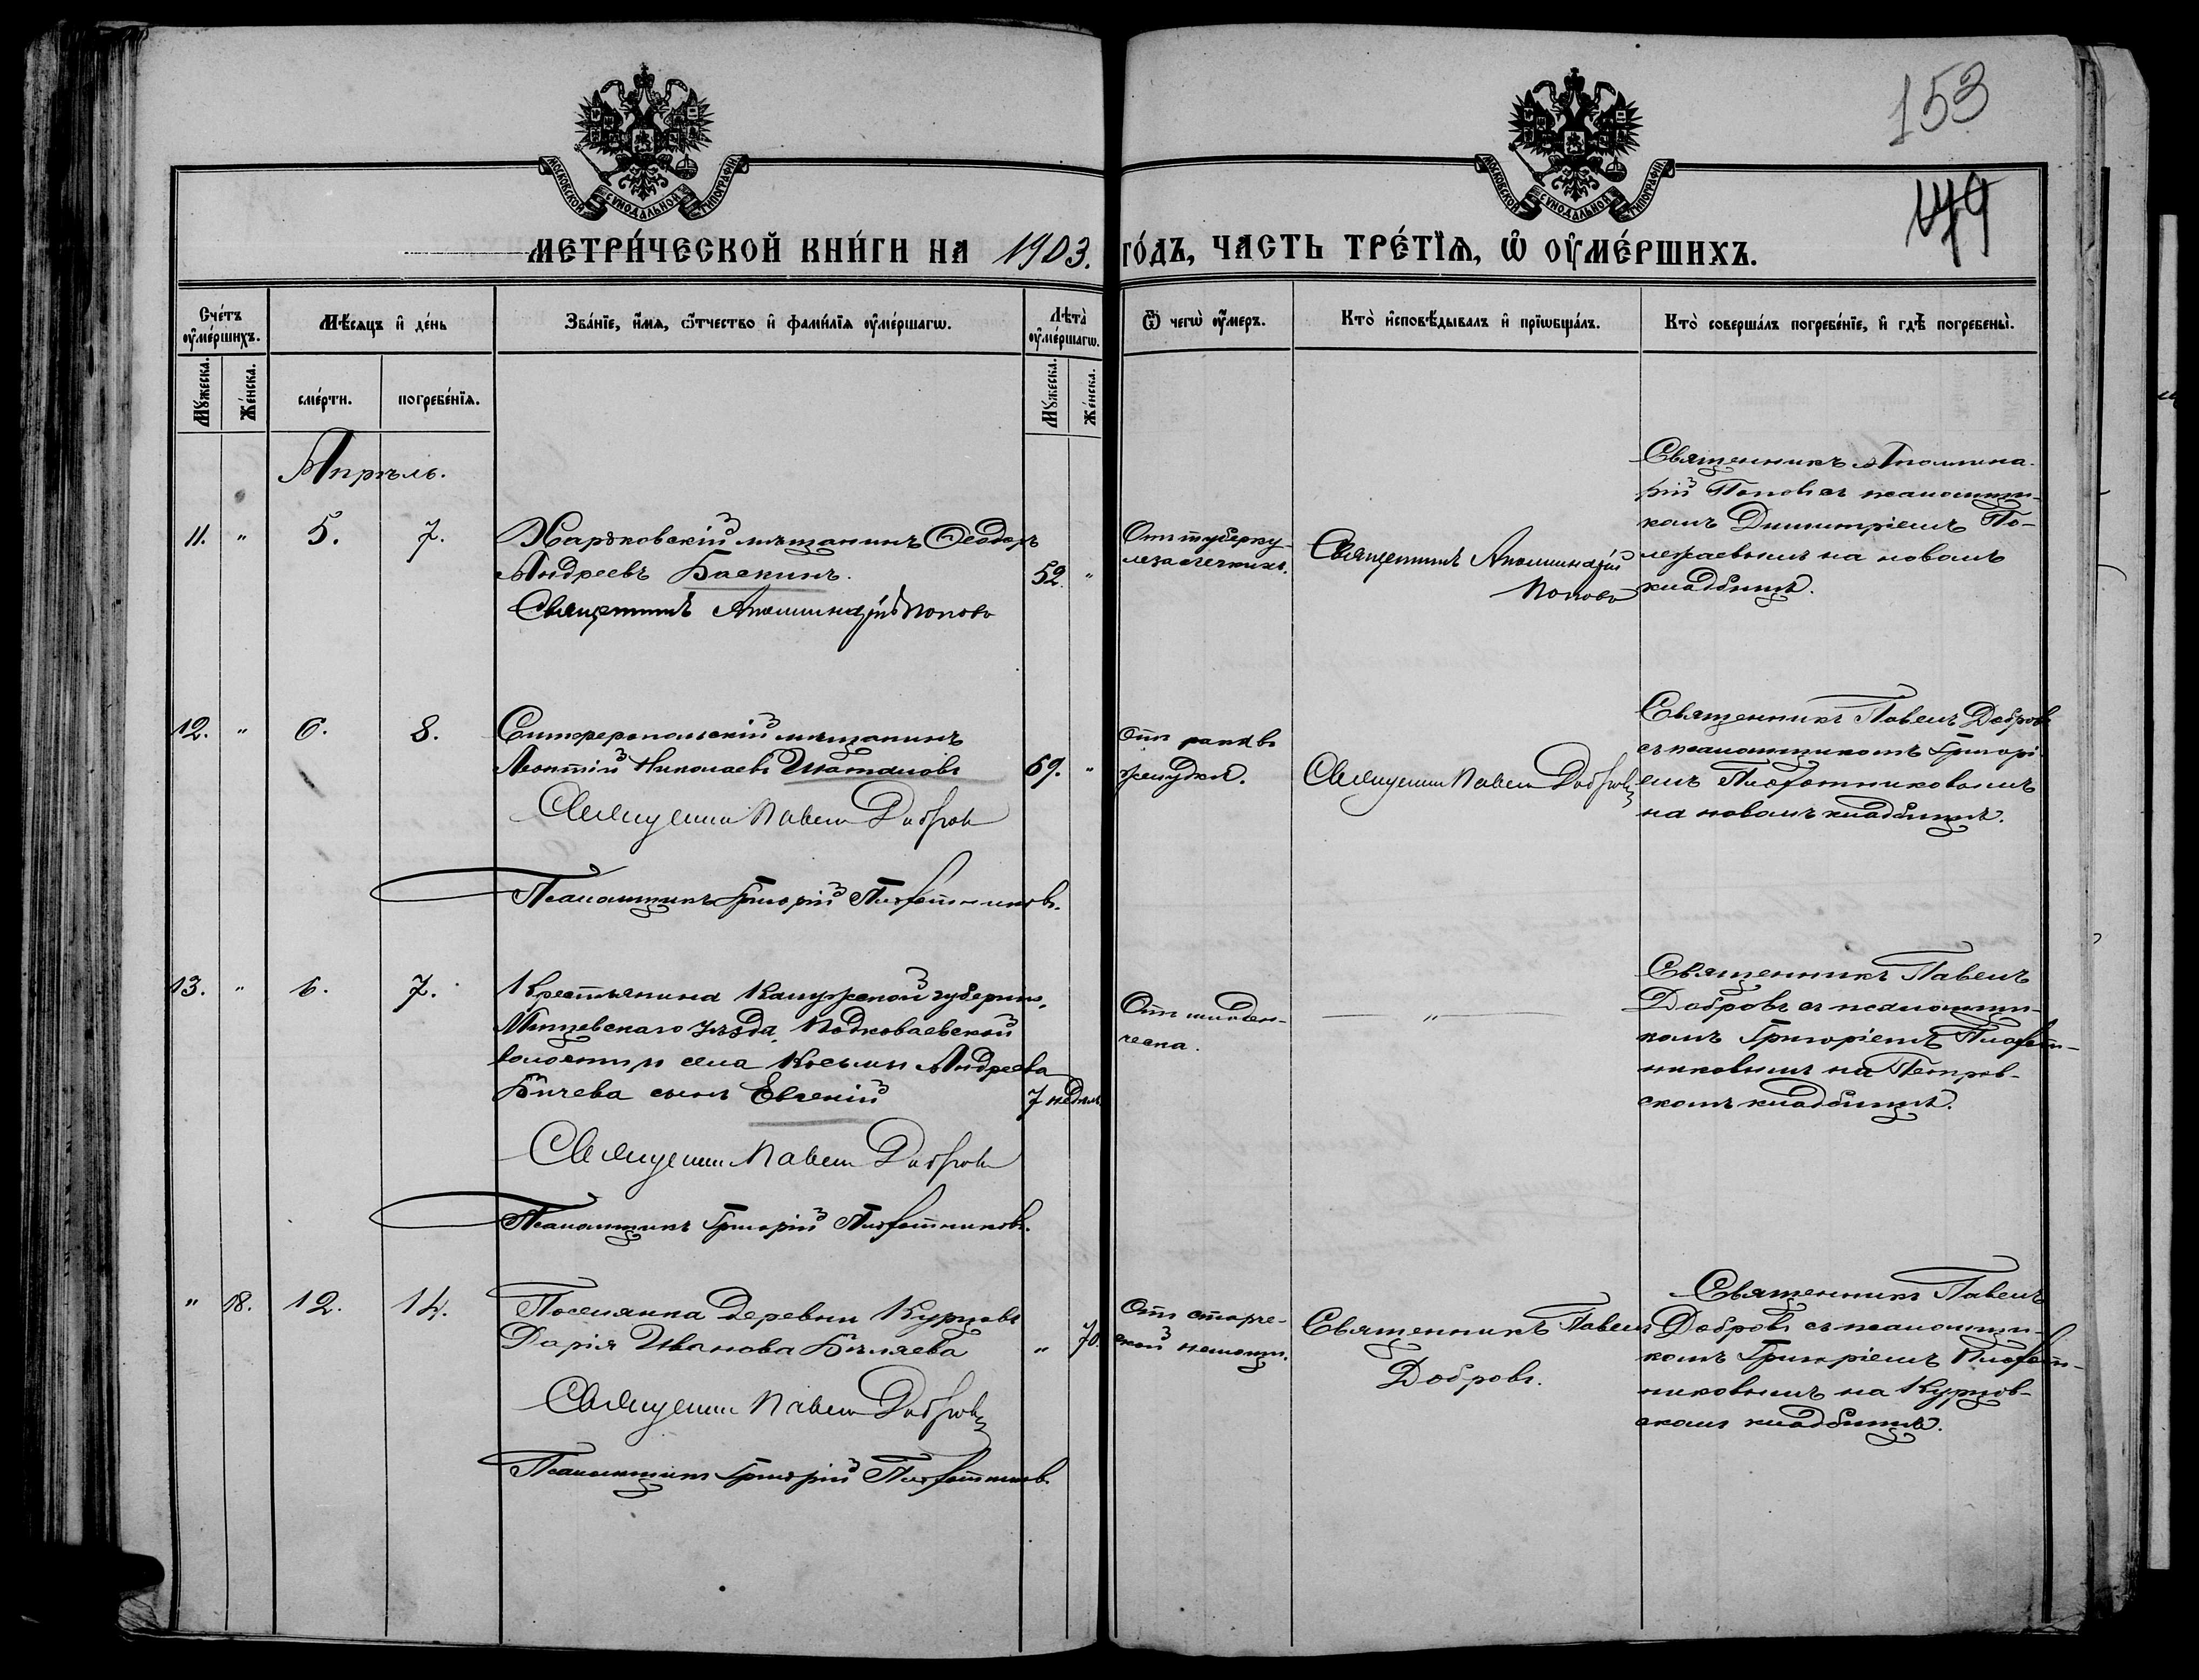 153
149
МОСКОВСКОЙ СУНОДАЛЬНОЙ ТИПОГРАФІИ
МОСКОВСКОЙ СУНОДАЛЬНОЙ ТИПОГРАФІИ
МЕТРИ́ЧЕСКОЙ КНИ́ГИ НА 1903. ГО́ДЪ, ЧАСТЬ ТРЕ́ТІѦ, Ѡ ОУ҆МЕ́РШИХЪ.
Сче́тъ оу҆ме́ршихъ.
Мѣ́сяцъ и҆ де́нь
Зва́нїе, и҆́мя, ѻ҆́тчество и҆ фами́лїя оу҆ме́ршагѡ.
Лѣта̀ оу҆ме́ршагѡ.
Ѿ чегѡ̀ оу҆́меръ.
Кто̀ и҆сповѣ́дывалъ и҆ прїѡбща́лъ.
Кто̀ соверша́лъ погребе́нїе, и҆ гдѣ̀ погребены̀.
Му́жеска.
Же́нска.
сме́рти.
погребе́нїя.
Му́жеска.
Же́нска.
Апрѣль.
11. " 5. 7.
Харьковскій мѣщанинъ Ѳеодоръ
Андреевъ Баскинъ.
52. "
Священникъ Аполлинарій Поповъ
Отъ туберку-
леза легкихъ.
Священникъ Аполлинарій
Поповъ
Священникъ Аполлина-
рій Поповъ съ псаломщи-
комъ Димитріемъ По-
лежаевымъ на новомъ
кладбищѣ.
12. " 6. 8.
Симферопольскій мѣщанинъ
Леонтій Николаевъ Шаталовъ
69. "
Священникъ Павелъ Добровъ
Псаломщикъ Григорій Плофотниковъ.
Отъ рака въ
желудкѣ.
Священникъ Павелъ Добровъ
Священникъ Павелъ Добровъ
съ псаломщикомъ Григорі-
емъ Плофотниковымъ
на новомъ кладбищѣ.
13. " 6. 7.
Крестьянина Калужской губерніи,
уѣзда,
волости и села Косьмы Андреева
Бычева сынъ Евгеній
7 недѣль
Священникъ Павелъ Добровъ
Псаломщикъ Григорій Плофотниковъ.
Отъ младен-
ческа.
"
Священникъ Павелъ
Добровъ съ псаломщи-
комъ Григоріемъ Плофот-
никовымъ на Петров-
скомъ кладбищѣ.
" 18. 12. 14.
Поселянка деревни Курцовъ
Дарія Иванова Бѣляева
" 70.
Священникъ Павелъ Добровъ
Псаломщикъ Григорій Плофотниковъ.
Отъ старче-
ской немощи.
Священникъ Павелъ
Добровъ.
Священникъ Павелъ
Добровъ съ псаломщи-
комъ Григоріемъ Плофот-
никовымъ на Курцов-
скомъ кладбищѣ.